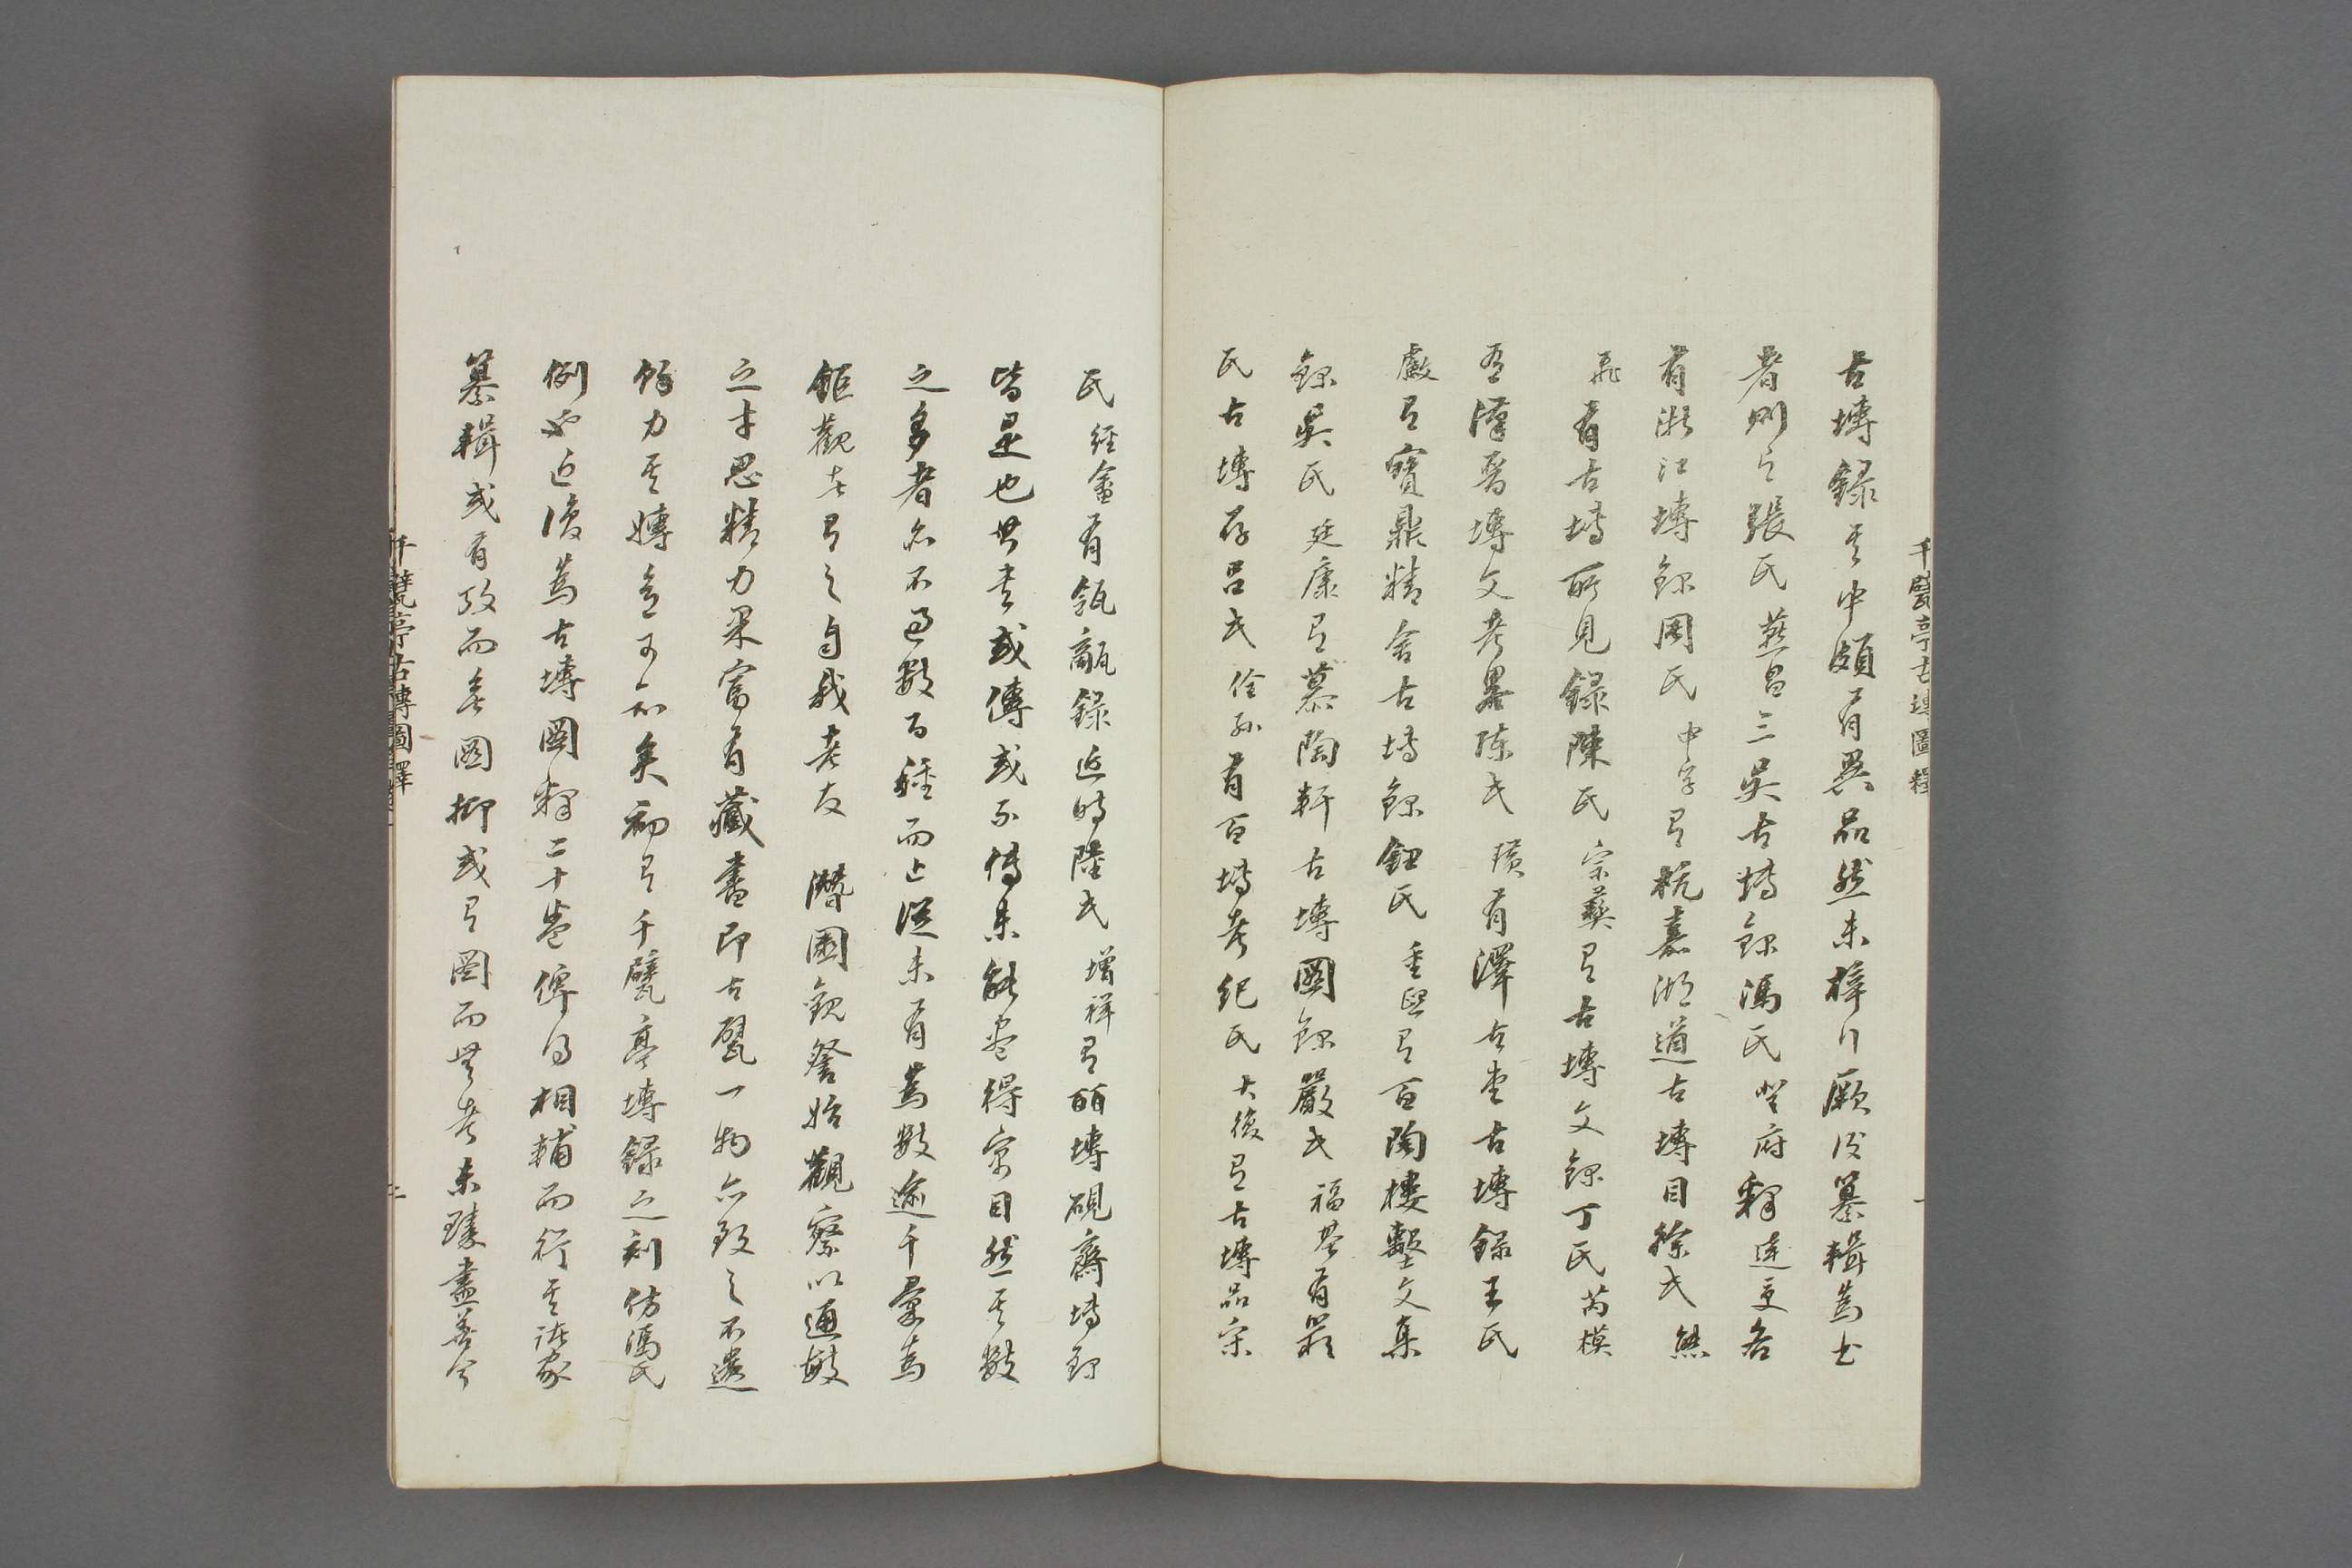 千甓亭古塼圖釋
一
古塼錄其中頗有異品然未梓行厥後纂輯為書
者則有張氏燕昌三吳古塼錄馮氏登府釋述更名
有浙江塼錄周氏中孚有杭嘉湖道古塼目徐氏熊
飛有古塼所見錄陳氏宗彝有古塼文錄丁氏芮模
有漢晉塼文考畧陳氏璜有澤古堂古塼錄王氏
獻有寶鼎精舍古塼錄鈕氏重熙有百陶樓甎文集
錄吳氏廷康有慕陶軒古塼圖錄嚴氏福基有嚴
氏古塼存呂氏佺孫有百塼考紀氏大復有古塼品宋
氏經畬有瓴甋錄近時陸氏增祥有皕塼硯齋塼錄
皆是也其書或傳或不傳未能盡得寓目然其數
之多者亦不過數百種而止從未有為數逾千彙為
鉅觀者有之自我老友 潛園觀詧始觀察以通敏
之才思精力果富有藏書即古甓一物亦致之不遺
餘力其塼之多可知矣初有千甓亭塼錄之刻仿馮氏
例也近復為古塼圖釋二十卷俾得相輔而行其諸家
纂輯或有考而無圖抑或有圖而無考未臻盡善今
千甓亭古塼圖釋
二